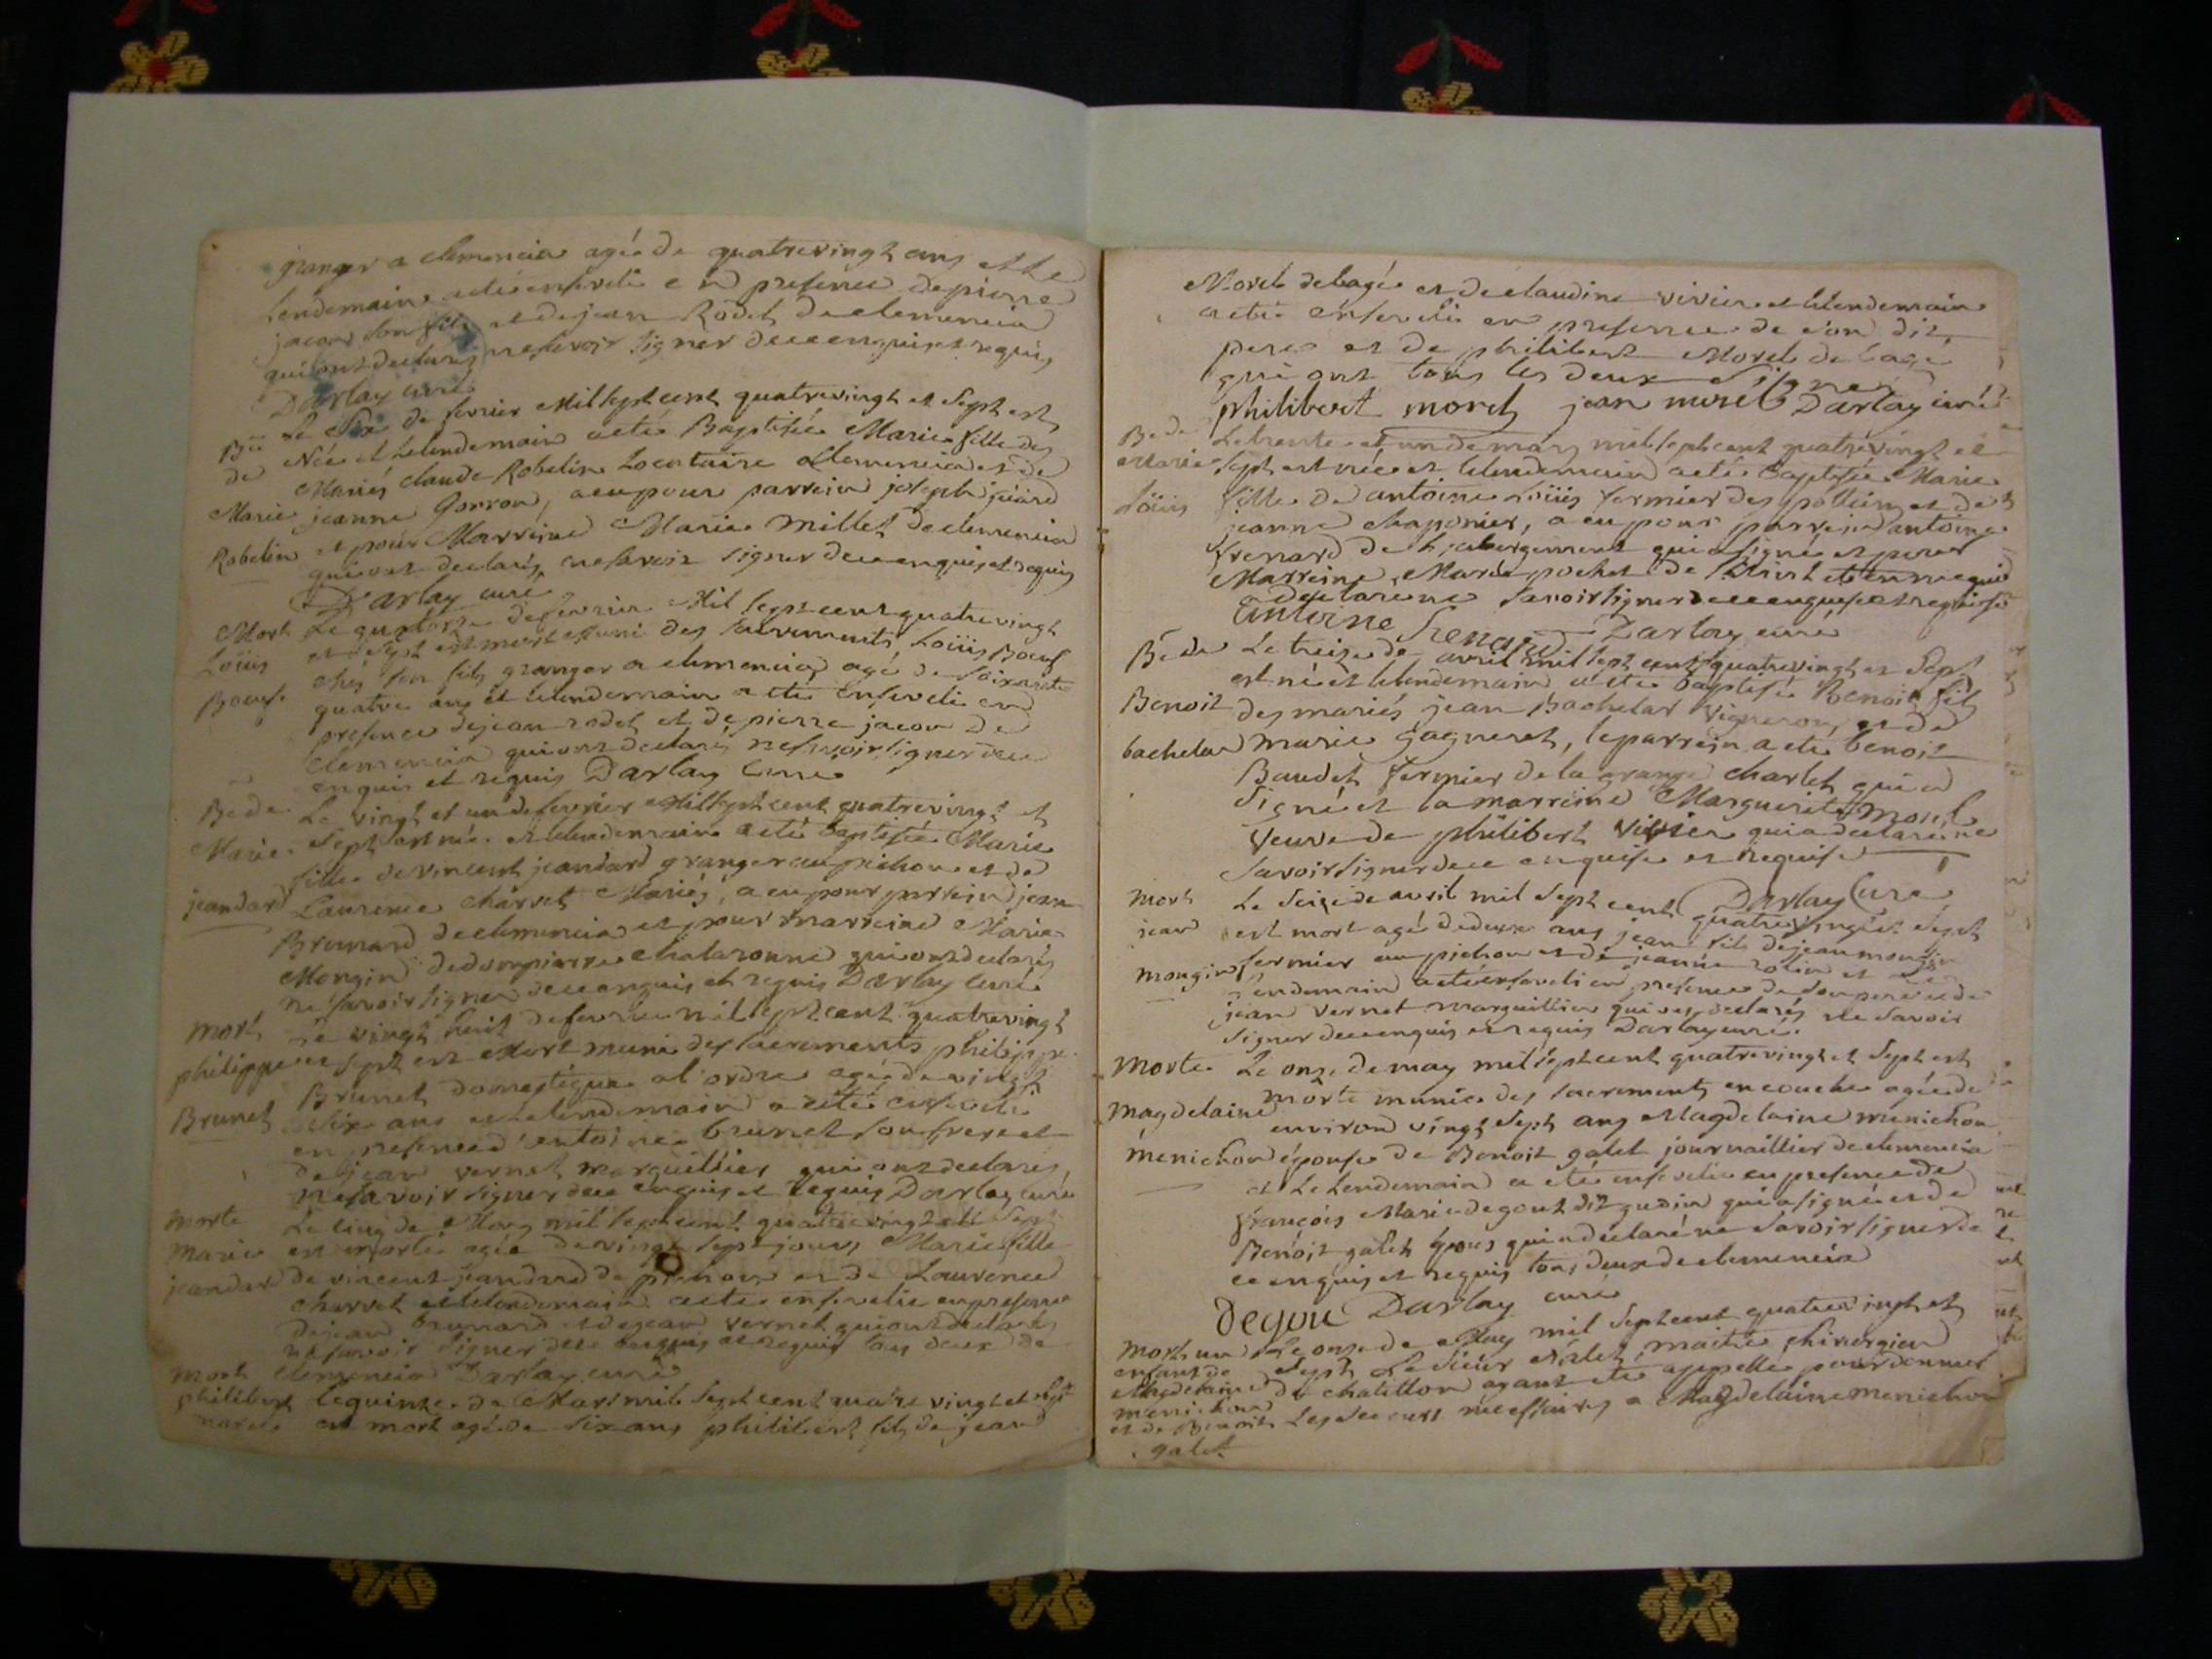 granger a clemencia agé de quatrevingt ans et le
lendemain a été enseveli en presence de pierre
jacou son fils et de jean Rodet de clemencia
qui ont declarés ne savoir signer de ce enquis et requis
Darlay curé
Bê Le six de fevrier mil sept cent quatrevingt et sept est
de Née et le lendemain a eté Baptisée Marie fille des
Mariés claude Robelin Locataire a Clemencia et de
Marie jeanne Gorron, a eu pour parrein joseph
Robelin et pour Marreine Marie Millet de clemencia
qui ont declarés ne savoir signer de ce enquis et requis
Darlay curé
Mort Le quatorze de fevrier Mil sept cent quatrevingt
Loüis et sept est mort muni des sacrements, Loüis Boeuf
chés son fils granger a clemencia agé de soixante
Boeuf quatre ans et le lendemain a eté enseveli en
presence de jean rodet et de pierre jacou de
clemencia qui ont declarés ne savoir signer de ce
enquis et requis Darlay Curé
Bê de Le vingt et un de fevrier Mil sept cent quatrevingt et
Marie Sept est née et le lendemain a eté baptisée Marie
fille de vincent jeandard granger au pichou et de
jeandard Laurence charvet Mariés, a eu pour parrein jean
Brunard de clemencia et pour marreine Marie
Mongin de dompierre chalaronne qui ont declarés
ne savoir signer de ce enquis et requis Darlay Curé
Mort Le vingt huit de fevrier mil sept cent quatrevingt
philippe et sept est Mort muni des sacrements philippe
Brunet domestique a l'ordre agé de vingt
Brunet six ans et le lendemain a eté enseveli
en presence d'antoine brunet son frere et
de jean vernet marguillier qui ont declarés
ne savoir signer de ce enquis et requis Darlay curé
Morte Le cinq de Mars mil sept cent quatrevingt et sept
Marie est morte agée de vingt sept jours Marie fille
jeandard de vincent jeandard de pichou et de Laurence
charvet et le lendemain a eté ensevelie en presence
de jean brunard et de jean vernet qui ont declarés
ne savoir signer de ce enquis et requis tous deux de
Mort clemencia Darlay curé
philibert Le quinze de Mars mil sept cent quatre vingt et sept
morel est mort agé de six ans philibert fils de jean
Morel de bagé et de claudine vivier et le lendemain
a eté enseveli en presence de son dit
pere et de philibert Morel de bagé
qui ont tous les deux signer
philibert morel jean morel Darlay curé
Bê de Le trente et un de mars mil sept cent quatrevingt et
Marie sept est née et le lendemain a eté baptisée Marie
Loüis fille de antoine Loüis fermier des et de
jeanne chaponier, a eu pour parrein antoine
frenard de l'abergement qui a signé et pour
Marreine Marie pochet de Saint etienne qui
a declaré ne savoir signer de ce enquise et requise
antoine Darlay curé
Bê de Le treize de avril mil sept cent quatrevingt et sept
est né et le lendemain a eté baptisé Benoit fils
Benoit des mariés jean Bachelar vigneron, et de
bachelar marie gagneret, le parrein a eté benoit
Baudet fermier de la grange charlet qui a
signé et la marreine Marguerite Morel
veuve de philibert vivier qui a declaré ne
savoir signer de ce enquise et requise
Darlay Curé
Mort Le seize de avril mil sept cent quatrevingt et sept
jean est mort agé de deux ans jean fils de jean mongin
mongin fermier au pichou et de jeanne et le
lendemain a eté enseveli en presence de son pere et de
jean vernet marguillier qui ont declarés ne savoir
signer de ce enquis et requis Darlay curé.
Morte Le onze de may mil sept cent quatrevingt et sept est
môrte munie des sacrements en couche agée de
magdelaine environ vingt sept ans Magdelaine menichon
menichon épouse de Benoit galet journaillier de clemencia
et Le Lendemain a eté ensevelie en presence de
françois Marie degout dit gudin qui a signé et de
Benoit galet époux qui a declaré ne savoir signer de
ce enquis et requis tous deux de clemencia
degou Darlay curé
Mort un Le onze de May mil sept cent quatrevingt et
enfant de sept Le sieur maitre chirurgien
Magdelaine de chatillon ayant eté appellé pour donner
menichon Les secours necessaires a Magdelaine menichon
et de Benoit
galet